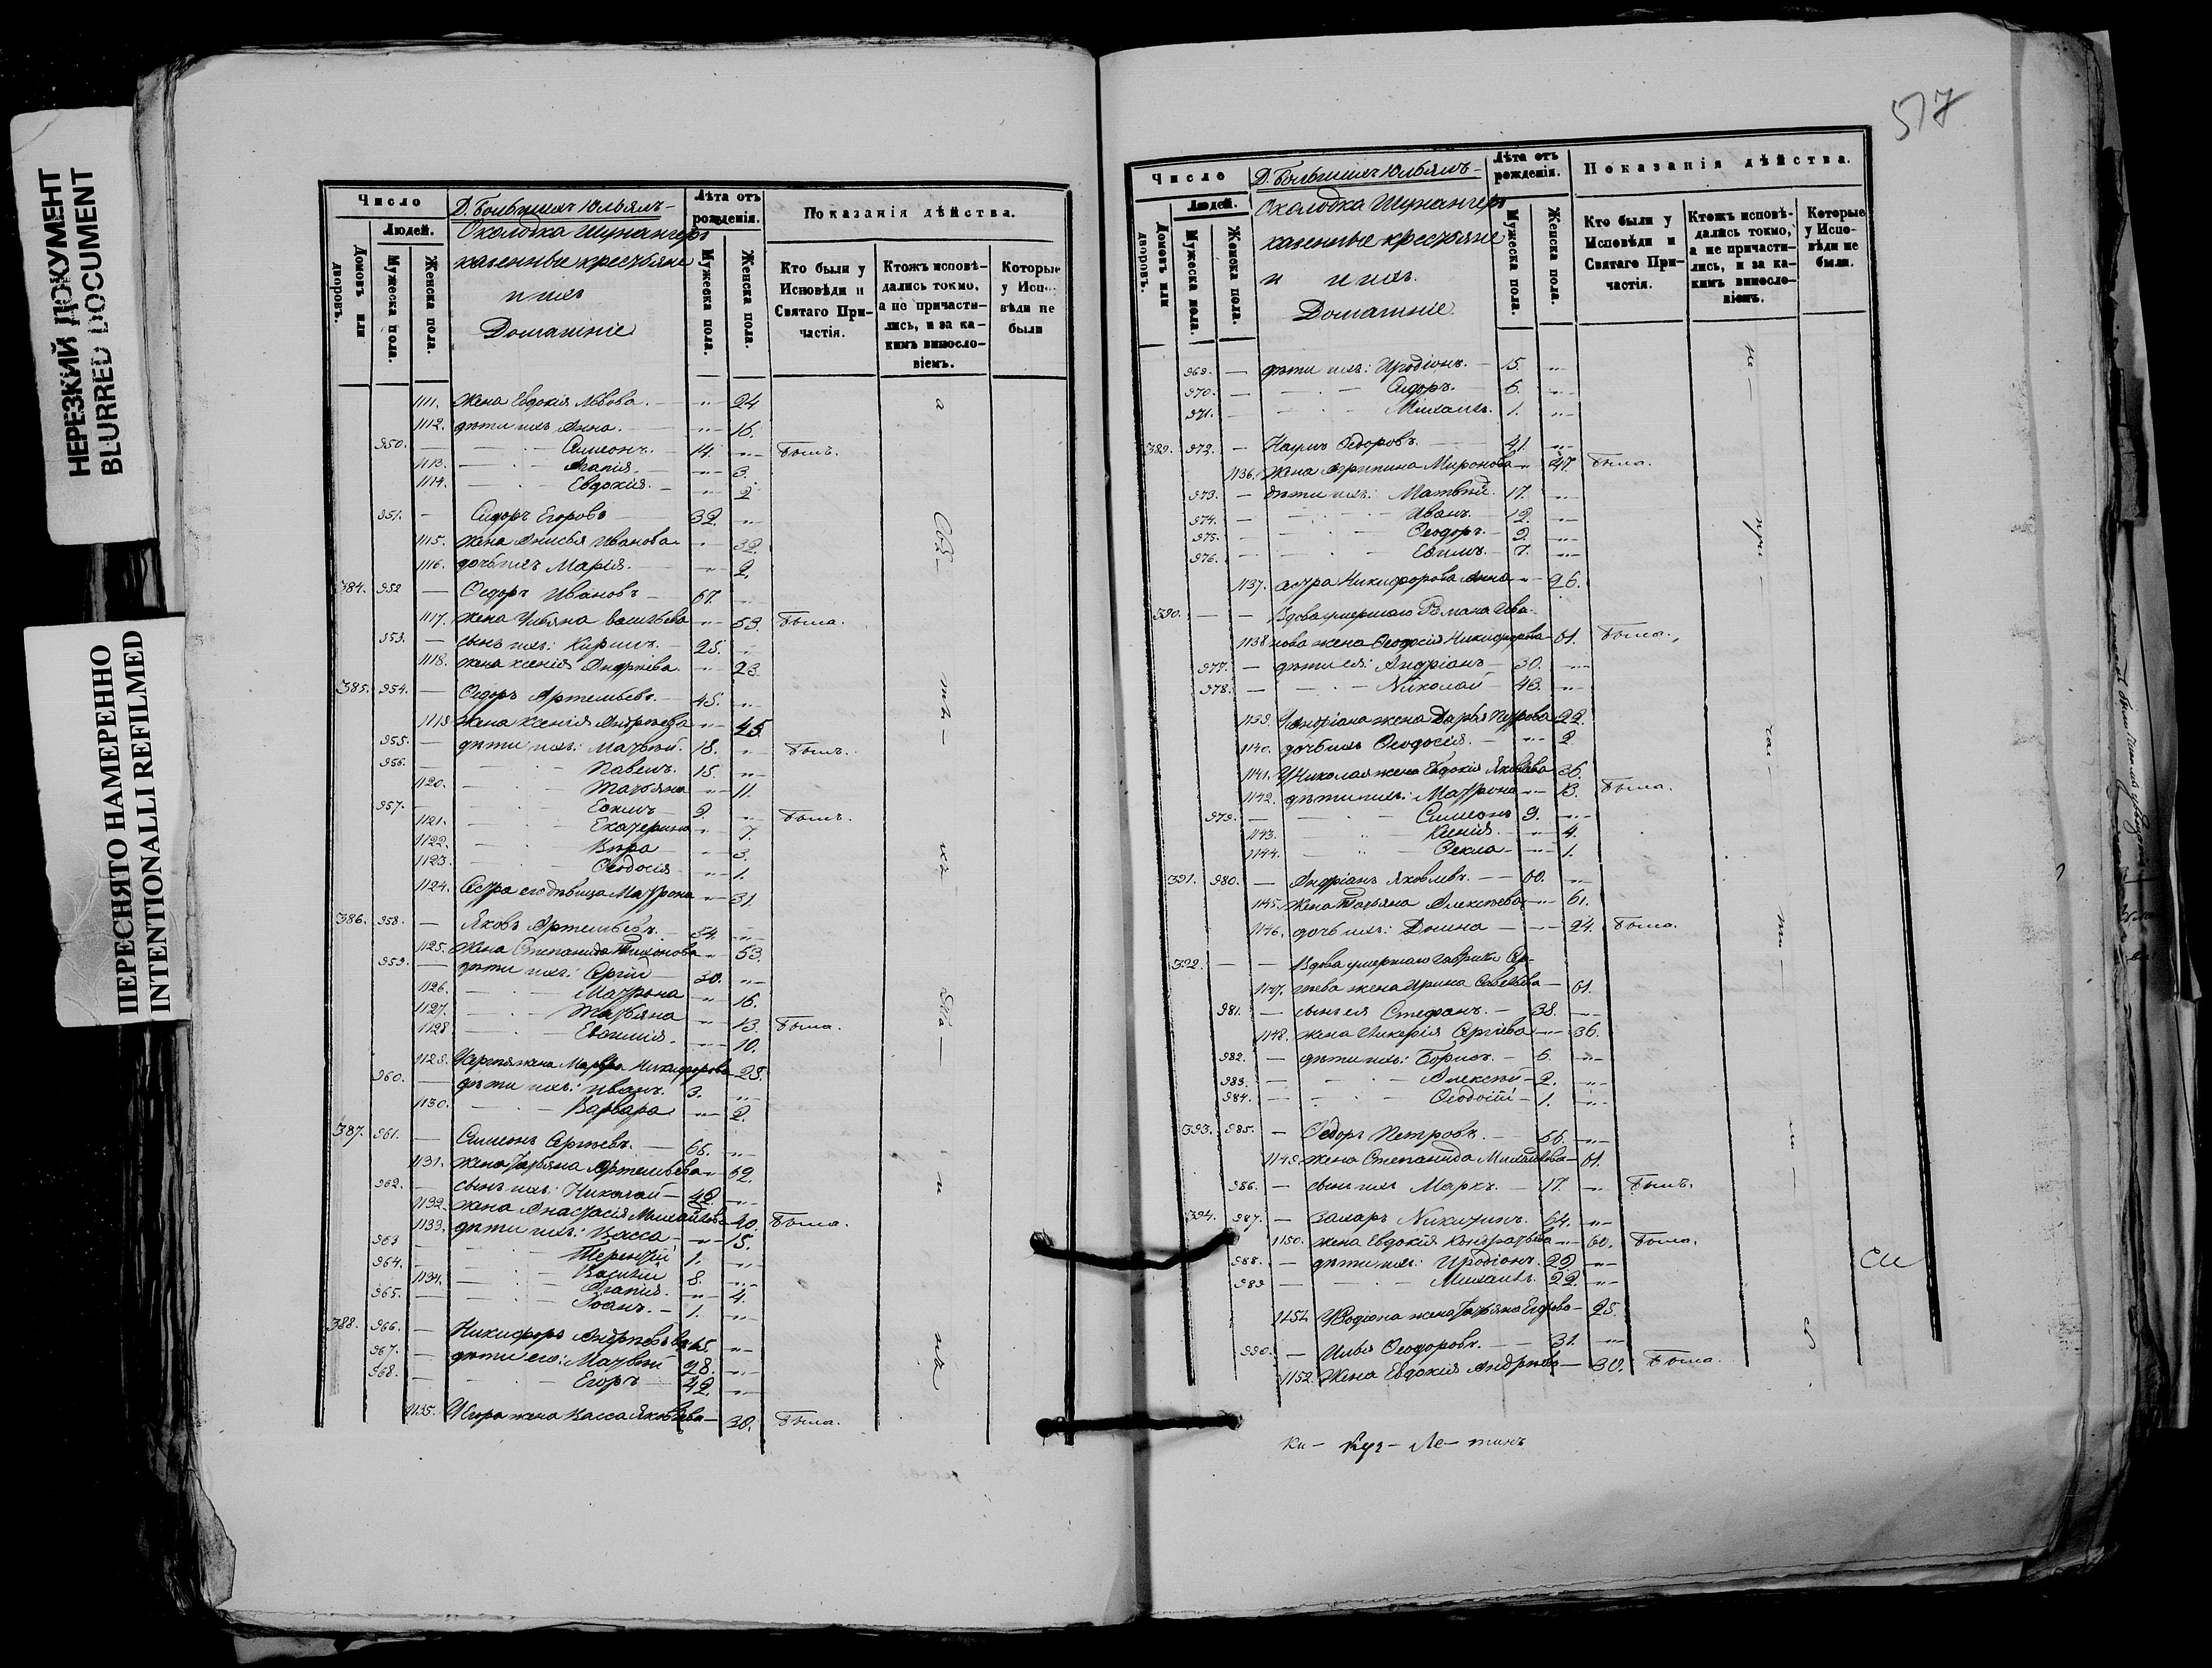 НЕРЕЗКИЙ ДОКУМЕНТ
BLURRED DOCUMENT
ПЕРЕСНЯТО НАМЕРЕННО
INTENTIONALLI REFILMED
Число
Домовъ или дворовъ.
Людей.
Мужеска пола.
Женска пола.
Околодка Шунангеръ
казенные крестьяне
и ихъ
Домашніе
Лѣта отъ рожденія.
Мужеска пола.
Женска пола.
Показанія дѣйства.
Кто были у Исповѣди и Святаго Причастія.
Ктожъ исповѣдались токмо, а не причастились, и за какимъ винословіемъ.
Которые у Исповѣди не были
1111. жена Евдокія Львова. 24
1112. дѣти ихъ Анна. 16.
950. Симеонъ. 14. Былъ.
1113. Агапія. 3.
1114. Евдокія. 2
951. Сидоръ Егоровъ 32.
1115. жена Анисья Иванова 32.
1116. дочь ихъ Марія. 2.
384. 952 Ѳедоръ Ивановъ 67.
1117. жена Ульяна Васильева 53. Была.
953. сынъ ихъ: Кирилъ. 25.
1118. жена Ксенія Андреева. 23.
385. 954. Ѳедоръ Артемьевъ. 45.
1119 жена Ксенія Андреева 45.
955. дѣти ихъ: Матвѣй. 18. Былъ.
956. Павелъ. 15.
1120. Татьяна 11.
957. Евѳимъ 9. Былъ.
1121. Екатерина 7.
1122. Вѣра 3.
1123. Ѳеодосія 1.
1124. Сестра его дѣвица Матрона 31.
386. 958. Яковъ Артемьевъ. 54.
1125. жена Степанида Тихонова 53.
959. дѣти ихъ: Сергій 30.
1126. Матрона 16.
1127. Татьяна 13. Была.
1128 Евѳимія. 10.
1129. У Сергѣя жена Марѳа Никифорова 28.
960. дѣти ихъ: Иванъ. 3.
1130. Варвара 2.
387. 961. Симеонъ Сергѣевъ. 66.
1131. жена Татьяна Артемьева 62.
962. сынъ ихъ: Николай 42.
1132. жена Анастасія Михайлова 40. Была.
1133. дѣти ихъ: Васса 15.
963 Терентій 1.
964. Василій 8.
1134. Агапія. 4.
965. Іоанъ. 1.
388. 966. Никифоръ Андреевъ 65.
967. дѣти его: Матвѣй 28.
968. Егоръ 42.
1135. У Егора жена Васса Яковлева 30. Была.
517
Число
Домовъ или дворовъ.
Людей.
Мужеска пола.
Женска пола.
Околодка Шунангеръ
казенные крестьяне
и ихъ.
Домашніе.
Лѣта отъ рожденія.
Мужеска пола.
Женска пола.
Показанія дѣйства.
Кто были у Исповѣди и Святаго Причастія.
Ктожъ исповѣдались токмо, а не причастились, и за какимъ винословіемъ.
Которые у Исповѣди не были.
969. дѣти ихъ: Иродіонъ. 15.
970. Сидоръ. 6.
971. Михаилъ. 1.
389. 972. Наумъ Ѳедоровъ 41.
1136. жена Агрипина Миронова 47. Была.
973. дѣти ихъ: Матвѣй. 17.
974. Иванъ. 12.
975. Ѳеодоръ. 9.
976. Евѳимъ. 7.
1137. сестра Никифорова Анна 26.
390. Вдова умершаго Романа Ива-
1138 нова жена Ѳеодосія Никифорова 61. Была.
977. дѣти ея: Андріанъ 30.
978. Николай 43.
1139. У Андріана жена Дарья Петрова 22.
1140. дочь ихъ Ѳеодосія. 2
1141. У Николая жена Евдокія Яковлева 36.
1142. дѣти ихъ: Матрона 13. Была.
979. Симеонъ 9.
1143. Ксенія. 4.
1144. Ѳекла 1.
391. 980. Андріанъ Яковлевъ. 60.
1145. жена Татьяна Алексѣева 61.
1146. дочь ихъ: Домна 24. Была.
392. Вдова умершаго Гаврила Сер-
1147. гѣева жена Ирина Савельева 61.
981. сынъ ея Стефанъ. 38.
1148. жена Гликерія Сергіева 36.
982. дѣти ихъ: Борисъ. 6.
983. Алексѣй 2.
984. Ѳеодосій 1.
393. 985. Ѳедоръ Петровъ. 66.
1149. жена Степанида Михайлова 61.
986. сынъ ихъ Маркъ. 17. Былъ.
394. 987. Захаръ Никитинъ. 64.
1150. жена Евдокія Кондратьева 60. Была.
988. дѣти ихъ: Иродіонъ. 29
989 Михаилъ. 22.
1151. У Родіона жена Татьяна Егорова 25.
990. Илья Ѳеодоровъ. 31.
1152. жена Евдокія Андреева 30. Была.